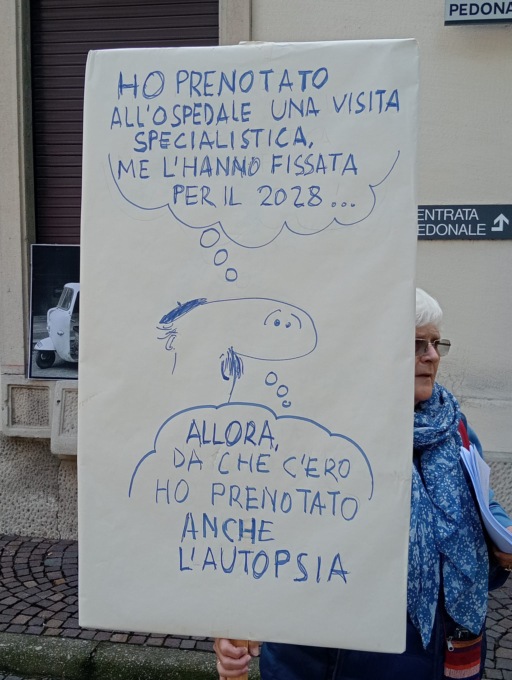 PEDONA
HO PRENOTATO
ALL'OSPEDALE UNA VISITA
SPECIALISTICA,
ME L'HANNO FISSATA
PER IL 2028...
ENTRATA
EDONALE
ALLORA,
DA CHE C'ERO
HO PRENOTATO
ANCHE
L'AUTOPSIA